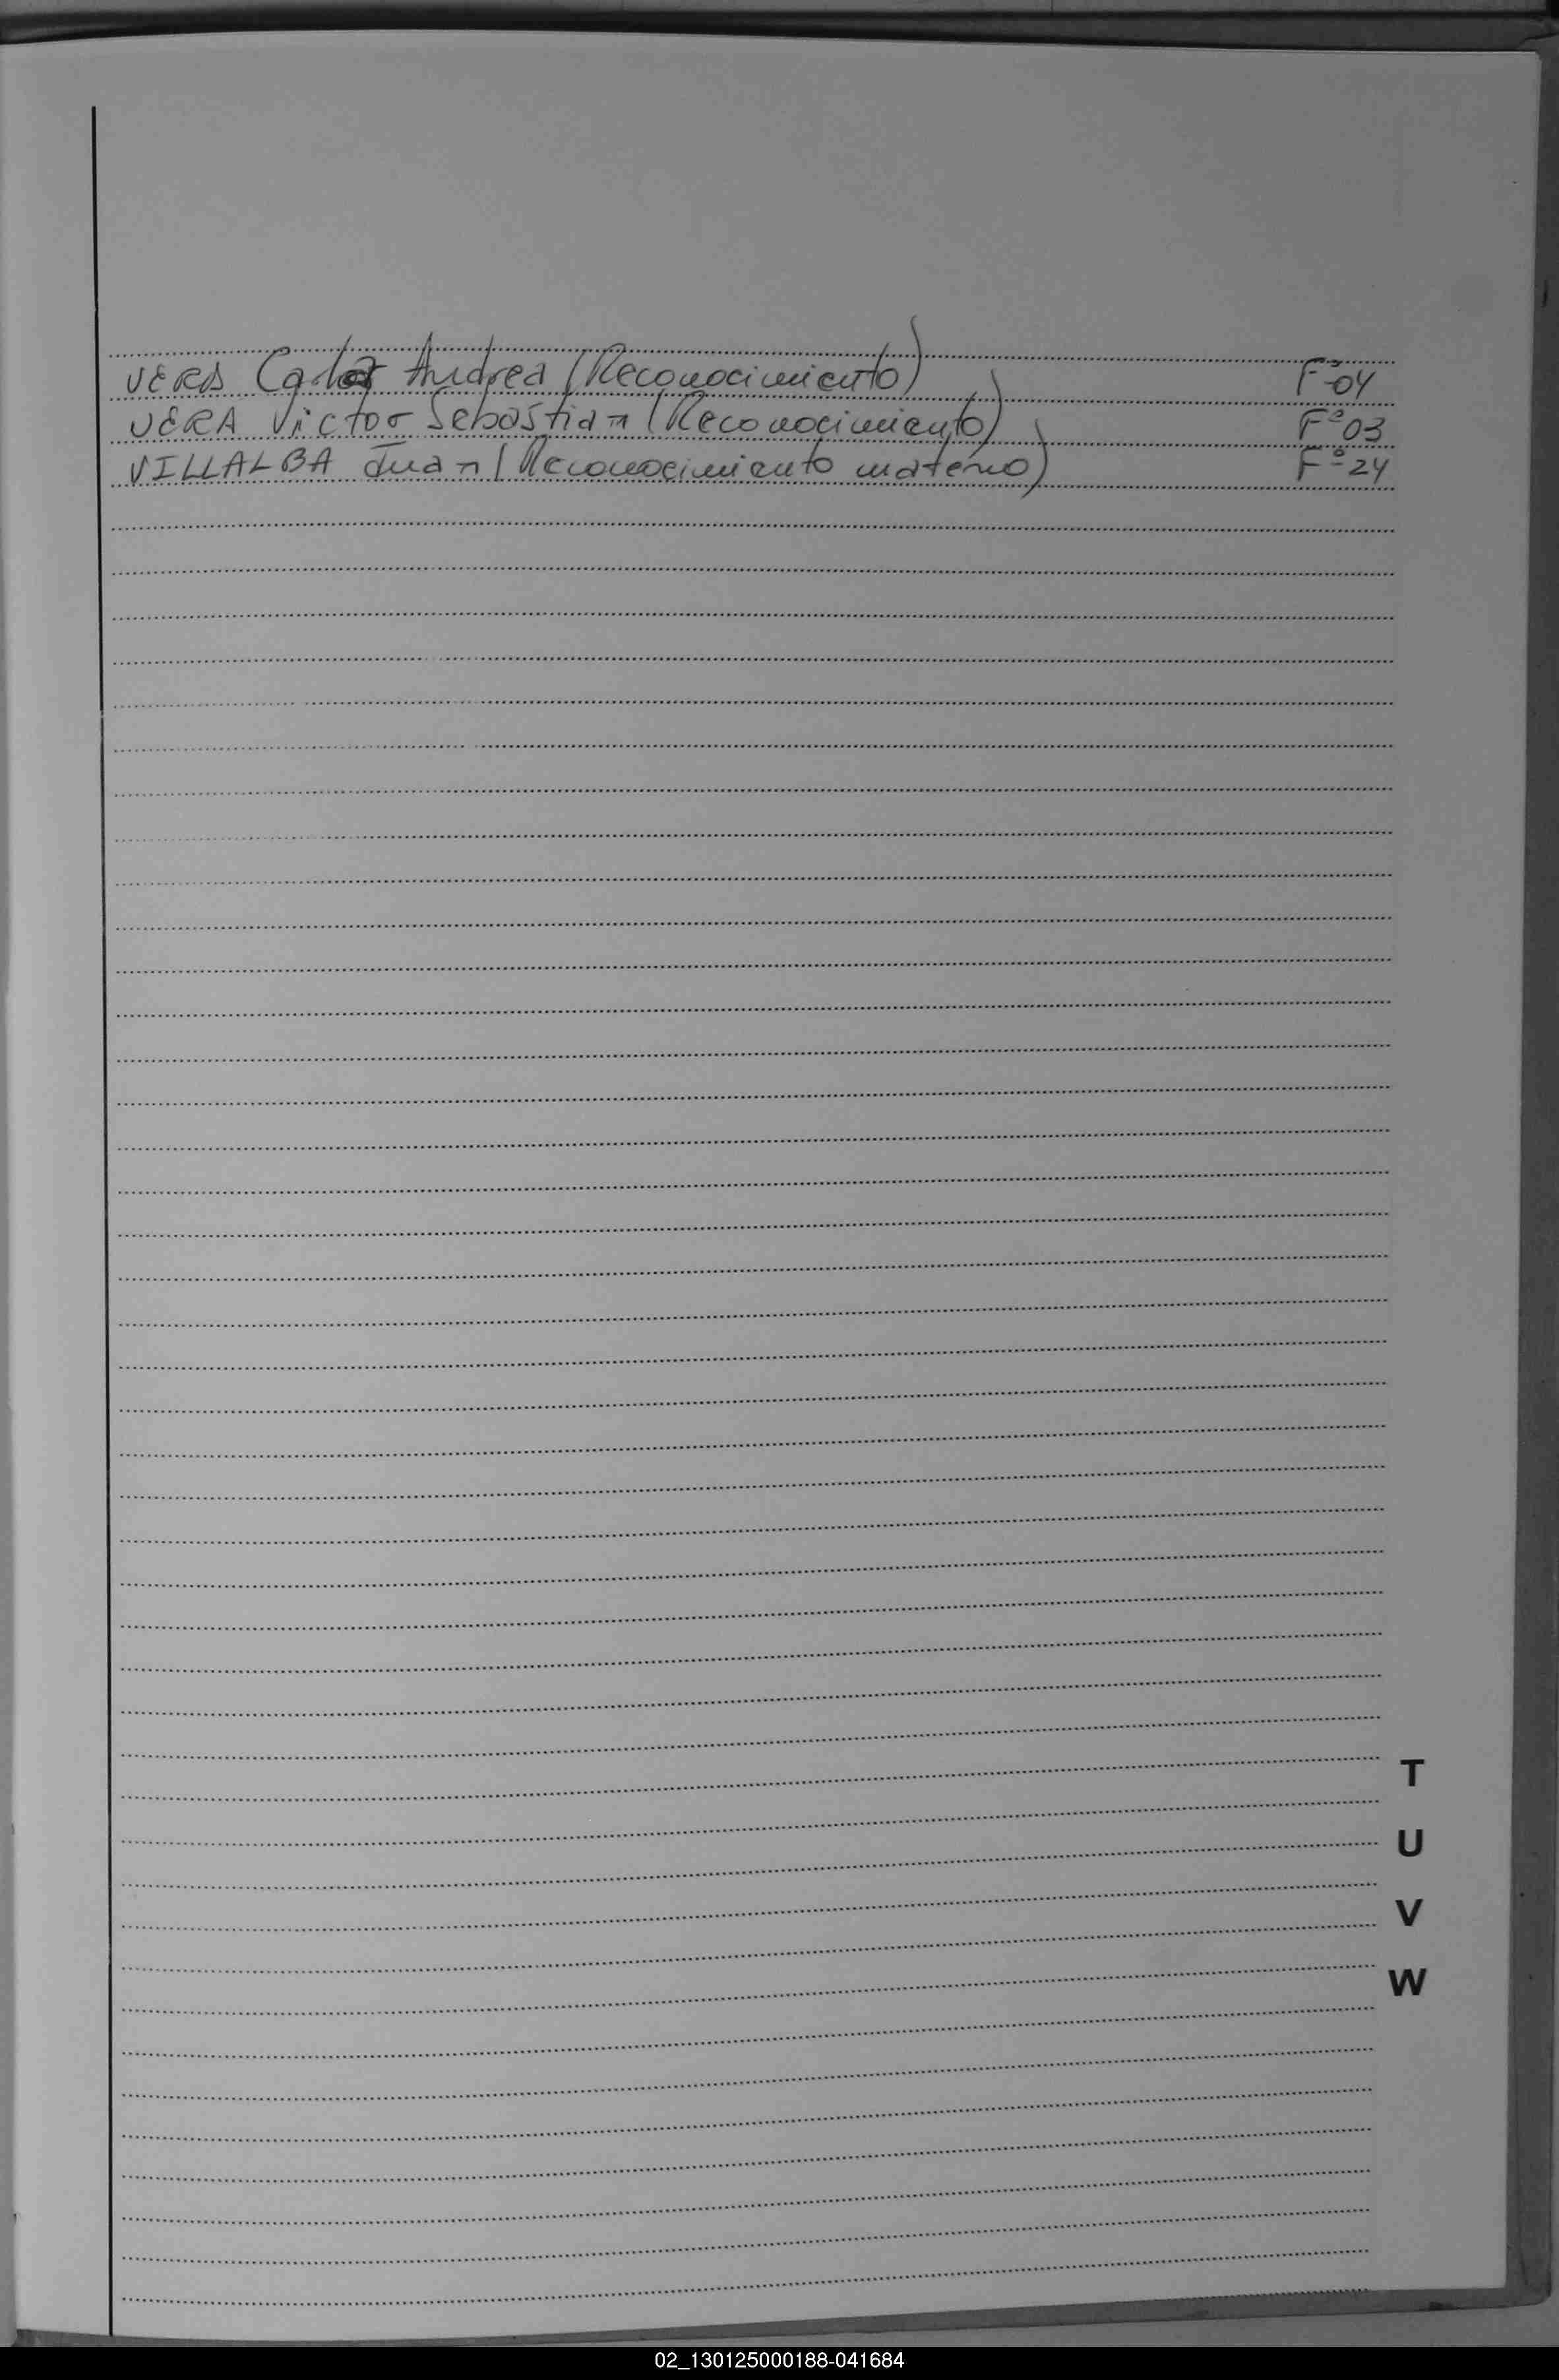 VERA Carla Andrea (Reconocimiento) Fº04
VERA Victor Sebastian (Reconocimiento) Fº03
VILLALBA Juan (Reconocimiento materno) Fº24
T
U
V
W
02_130125000188-041684